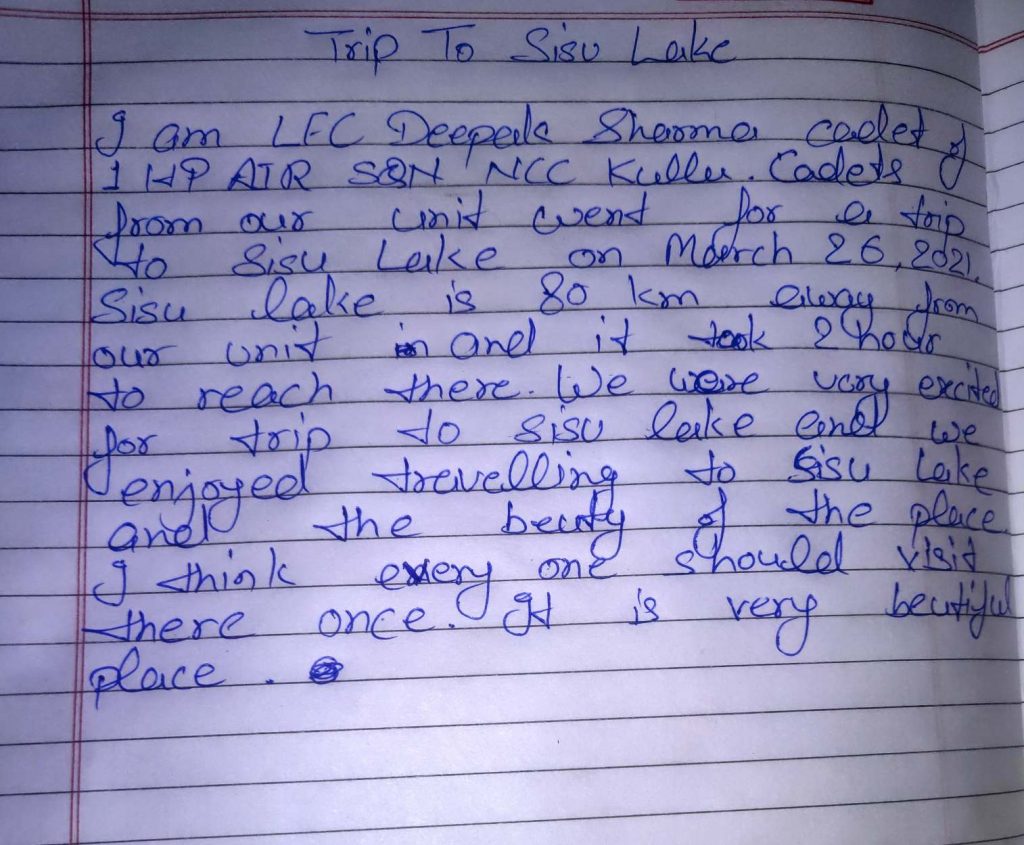 Trip To Sisu Lake
I am LFC Deepak Sharma cadet of
1 HP AIR SQN NCC Kullu. Cadets
from our unit went for a trip
to Sisu Lake on March 26, 2021.
Sisu lake is 80 km away from
our unit and it took 2 hour
to reach there. We were very excited
for trip to sisu lake and we
enjoyed travelling to Sisu Lake
and the beuty of the place
I think every one should visit
there once. It is very beutiful
place.